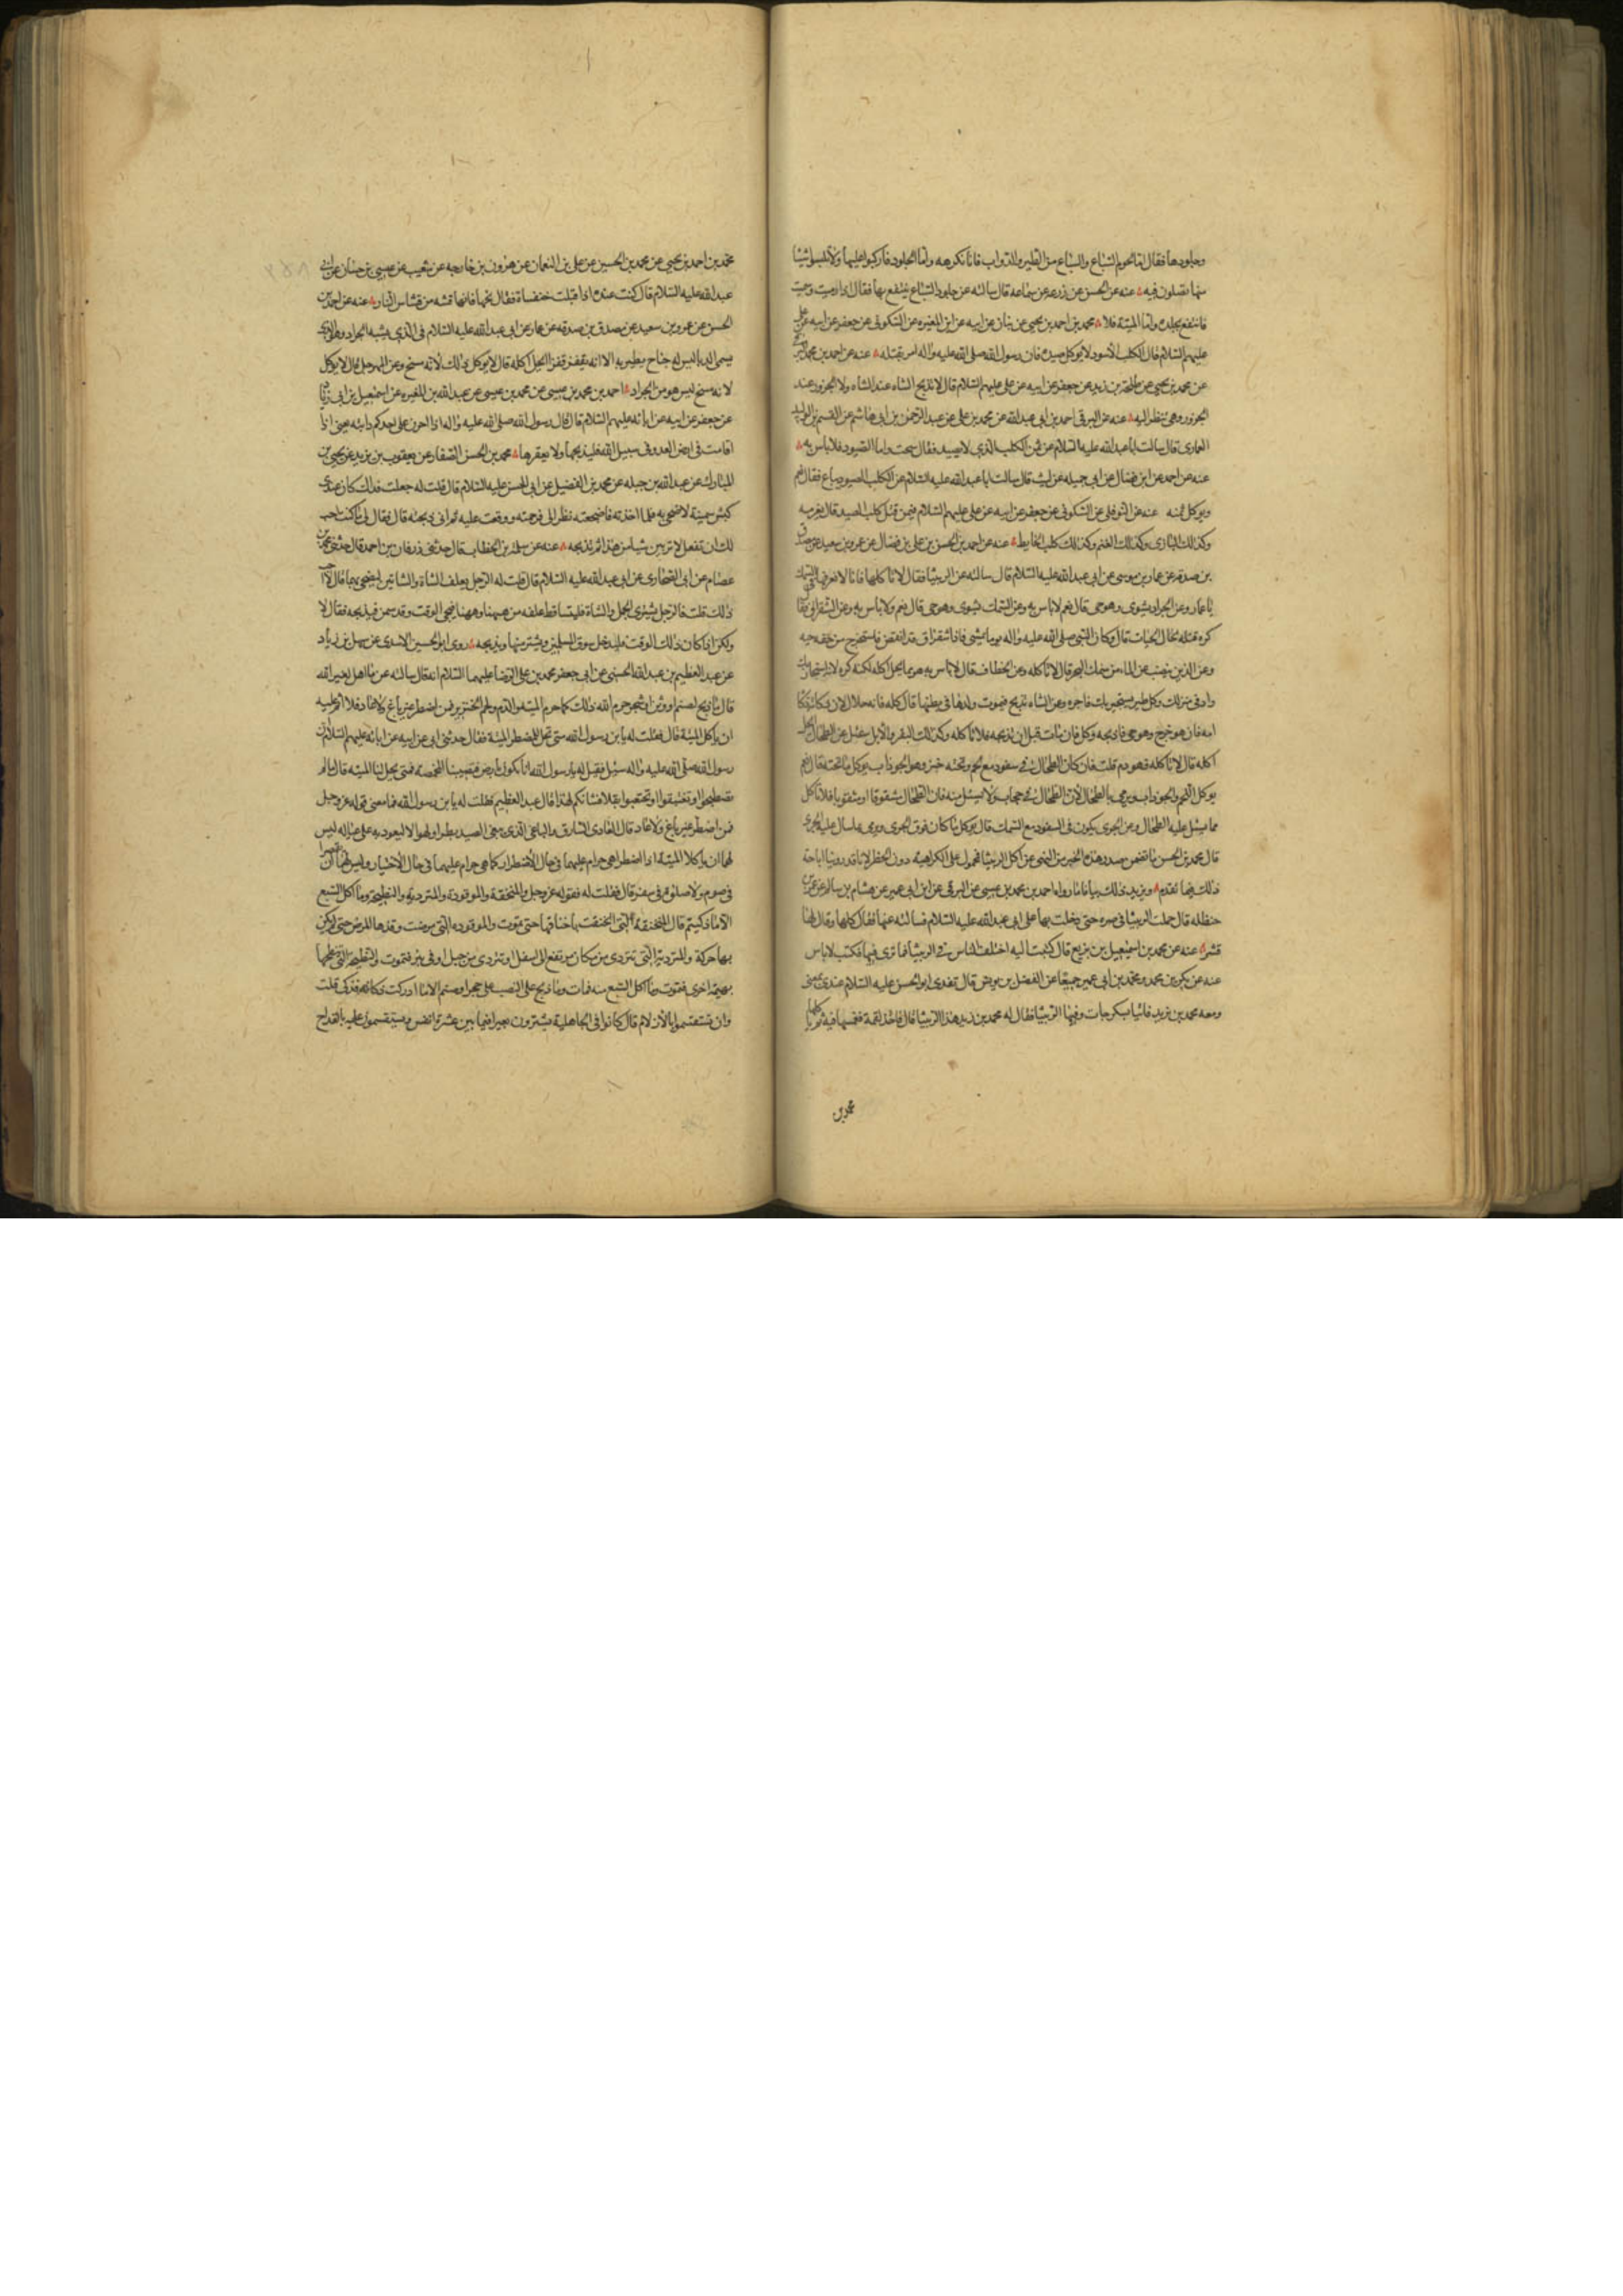 وجلودها فقال اما لحوم السباع والسباع من الطير والدواب فانا نكرهه واما الجلود فاركبوا عليها ولا تلبسوا شيئا
منها تصلون فيه عنه عن الحسن عن زرعه عن سماعة قال سالته عن جلود السباع ينتفع بها فقال اذا رميت وسميت
فانتفع بجلده واما الميتة فلا محمد بن احمد بن يحيى عن بنان عن ابيه عن ابن المغيره عن السكوني عن جعفر عن ابيه عن علي
عليهم السلام قال الكلب الاسود لا يوكل صيده فان رسول الله صلى الله عليه واله امر بقتله عنه عن احمد بن محمد
عن محمد بن يحيى عن طلحة بن زيد عن جعفر عن ابيه عن علي عليهم السلام قال لا تذبح الشاه عند الشاه ولا الجزور عند
الجزور وهي تنظر اليه عنه عن البرقي احمد بن ابي عبد الله عن محمد بن علي عن عبد الرحمن بن ابي هاشم عن القسم بن الوليد
العماري قال سالت ابا عبد الله عليه السلام عن ثمن الكلب الذي لا يصيد فقال سحت واما الصيود فلا باس به
عنه عن احمد عن ابن فضال عن ابي جميله عن ليث قال سالت ابا عبد الله عليه السلام عن الكلب الصيود يباع فقال نعم
ويوكل ثمنه عنه عن النوفلي عن السكوني عن جعفر عن ابيه عن علي عليهم السلام فيمن قتل كلب الصيد قال يغرمه
وكذلك البازي وكذلك كلب الغنم وكذلك كلب الحايط عنه عن احمد بن الحسن بن علي بن فضال عن عمرو بن سعيد عن مصدق
بن صدقه عن عمار بن موسى عن ابي عبد الله عليه السلام قال سالته عن الربيثا فقال لا تاكلها فانا لا نعرفها في السمك
يا عمار وعن الجراد يشوى وهو حي قال نعم لا باس به وعن السمك يشوى وهو حي قال نعم ولا باس به وعن الشقراق فقال
كره قتله لحال الحيات قال وكان النبي صلى الله عليه واله يوما يمشي فاذا شقراق قد انقض فاستخرج من خفه حيه
وعن الذي ينضب عنه الماء من سمك البحر قال لا تاكله وعن الخطاف قال لا باس به هو مما يحل اكله لكنه كره لانه استجار بك
واوى في منزلك وكل طير يستجير بك فاجره وعن الشاه تذبح فيموت ولدها في بطنها قال كله فانه حلال لان ذكاته ذكاة
امه فان هو خرج وهو حي فاذبحه وكل فان مات قبل ان تذبحه فلا تاكله وكذلك البقر والابل سئل عن الطحال ايحل
اكله قال لا تاكله فهو دم قلت فان كان الطحال في سفود مع لحم وتحته خبز وهو الجوذاب يوكل ما تحته قال نعم
يوكل اللحم والجوذاب ويرمى بالطحال لان الطحال في حجاب ولا يسيل منه فان الطحال مشقوقا او مثقوبا فلا تاكل
مما يسيل عليه الطحال وعن الجري يكون في السفود مع السمك قال يوكل ما كان فوق الجري ويرمى ما سال عليه الجري
قال محمد بن الحسن ما تضمن صدر هذه الخبر من النهي عن اكل الربيثا محمول على الكراهية دون الحظر لانا قد روينا اباحة
ذلك فيما تقدم ويزيد ذلك بيانا ما رواه احمد بن محمد بن عيسى عن البرقي عن ابن ابي عمير عن هشام بن سالم عن عمر بن
حنظله قال حملت الربيثا في صره حتى دخلت بها على ابي عبد الله عليه السلام فسالته عنها فقال كلها وقال لها
قشر عنه عن محمد بن اسمعيل بن بزيع قال كتبت اليه اختلف الناس في الربيثا فما ترى فيها فكتب لا باس
عنه عن بكر بن محمد ومحمد بن ابي عمير جميعا عن الفضل بن يونس قال تغدى ابو الحسن عليه السلام عندي بمنى
ومعه محمد بن زيد فاتيا بسكرجات وفيها الربيثا فقال له محمد بن زيد هذا الربيثا قال فاخذ لقمة فغمسها فيه ثم اكلها
محمد بن
محمد بن احمد بن يحيى عن محمد بن الحسين عن علي بن النعمان عن هرون بن خارجه عن شعيب عن عيسى بن حسان عن ابي
عبد الله عليه السلام قال كنت عنده اذا قبلت خنفساة فقال نحها فانها قشه من قشاش النار عنه عن احمد بن
الحسن عن عمرو بن سعيد عن مصدق بن صدقه عن عمار عن ابي عبد الله عليه السلام في الذي يشبه الجراد وهو الذي
يسمى الدبا ليس له جناح يطير به الا انه يقفز قفزا ايحل اكله قال لا يوكل ذلك لانه مسخ وعن المهرجل قال لا يوكل
لانه مسخ ليس هو من الجراد احمد بن محمد بن عيسى عن محمد بن عيسى عن عبد الله بن المغيره عن اسمعيل بن ابي زياد
عن جعفر عن ابيه عن ابائه عليهم السلام قال قال رسول الله صلى الله عليه واله اذا حرن على احدكم دابته يعني اذا
اقامت في ارض العدو في سبيل الله فليذبحها ولا يعرقبها محمد بن الحسن الصفار عن يعقوب بن يزيد عن يحيى بن
المبارك عن عبد الله بن جبله عن محمد بن الفضيل عن ابي الحسن عليه السلام قال قلت له جعلت فداك كان عندي
كبش سمينة لاضحي به فلما اخذته فاضجعته نظر الي فرحمته ورققت عليه ثم اني ذبحته قال فقال لي ما كنت احب
لك ان تفعل لا تربين شيا من هذا ثم تذبحه عنه عن سلمة بن الخطاب قال حدثني زرقان بن احمد قال حدثني محمد بن
عصام عن ابي الصحاري عن ابي عبد الله عليه السلام قال قلت له الرجل يعلف الشاة والشاتين ليضحي بها قال لا احب
ذلك قلت فالرجل يشتري الجمل والشاة فليتساقط علفه من ههنا وههنا فيجي الوقت وقد سمن فيذبحه فقال لا
ولكن اذا كان ذلك الوقت فليدخل سوق المسلمين ويشتر منها ويذبحه روى ابو الحسين الاسدي عن سهل بن زياد
عن عبد العظيم بن عبد الله الحسني عن ابي جعفر محمد بن علي الرضا عليهما السلام انه قال سالته عن ما اهل لغير الله
قال ما ذبح لصنم او وثن او شجر حرم الله ذلك كما حرم الميتة والدم ولحم الخنزير فمن اضطر غير باغ ولا عاد فلا اثم عليه
ان ياكل الميتة قال فقلت له يابن رسول الله متى تحل للمضطر الميتة فقال حدثني ابي عن ابيه عن ابائه عليهم السلام ان
رسول الله صلى الله عليه واله سئل فقيل له يا رسول الله انا نكون بارض فتصيبنا المخمصه فمتى يحل لنا الميته قال ما لم
تصطبحوا او تغتبقوا او تحتفبوا بقلا فشانكم بهذا قال عبد العظيم فقلت له يابن رسول الله فما معنى قوله عز وجل
فمن اضطر غير باغ ولا عاد قال العادي السارق والباغي الذي يبغي الصيد بطرا ولهوا لا ليعود به على عياله ليس
لهما ان ياكلا الميتة اذا اضطرا هي حرام عليهما في حال الاضطرار كما هي حرام عليهما في حال الاختيار وليس لهما ان يقصرا
في صوم ولا صلوة في سفر قال فقلت له فقوله عز وجل والمنخنقة والموقوذة والمتردية والنطيحة وما اكل السبع
الا ما ذكيتم قال المنخنقة التي انخنقت باخناقها حتى تموت والموقوذه التي مرضت وقذها المرض حتى لم يكن
بها حركة والمتردية التي تتردى من مكان مرتفع الى اسفل او تتردى من جبل او في بئر فتموت والنطيحة التي تنطحها
بهيمة اخرى فتموت وما اكل السبع منه فمات وما ذبح على النصب على حجر او صنم الا ما ادركت ذكاته فذكي قلت
وان تستقسموا بالازلام قال كانوا في الجاهلية يشترون بعيرا فيما بين عشرة انفس ويستقسمون عليه بالقداح